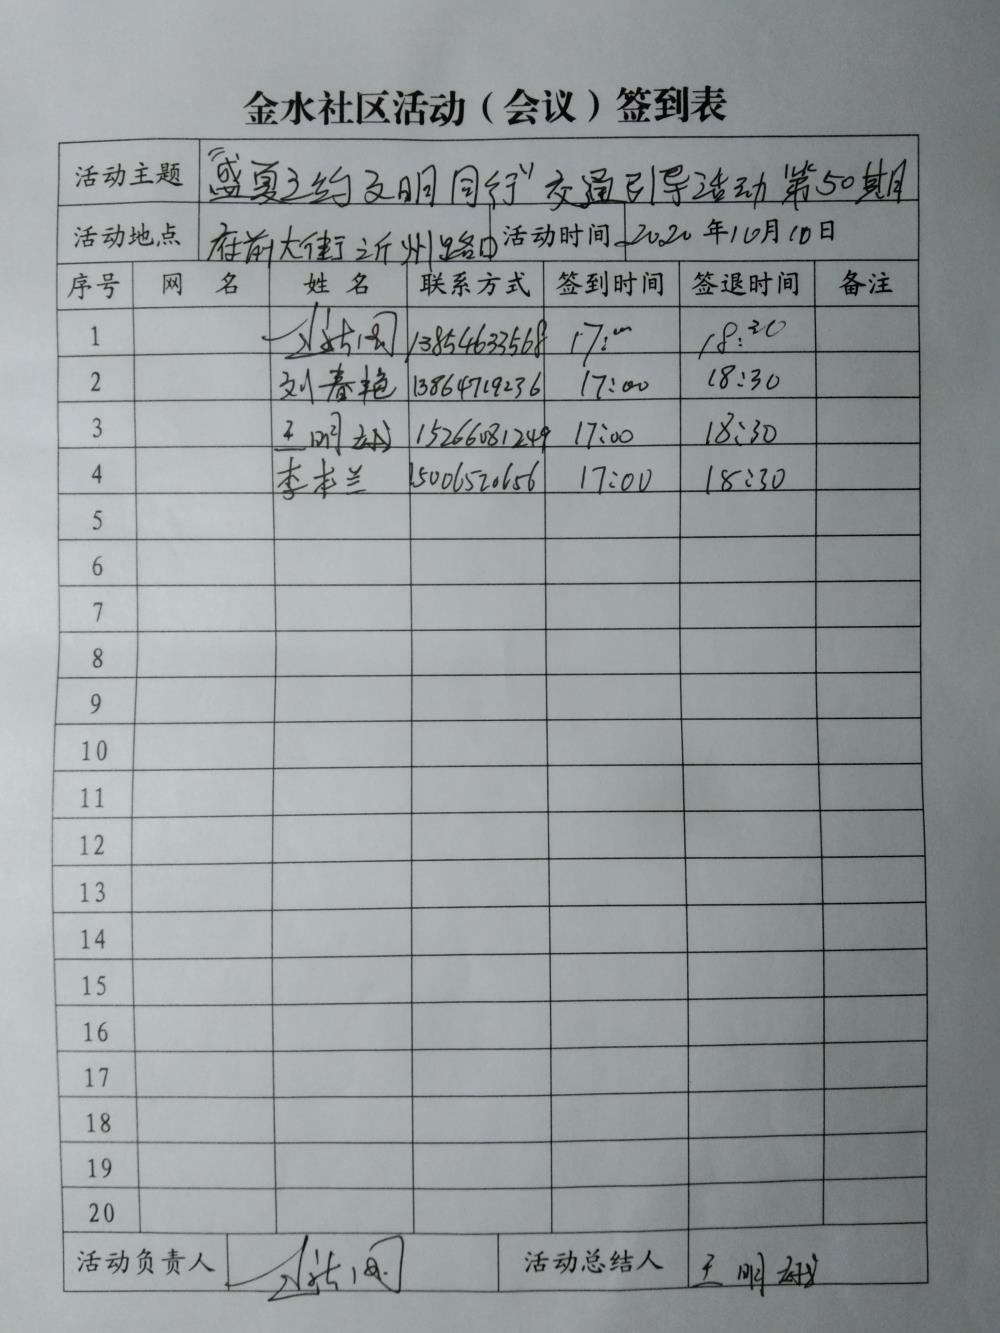 金水社区活动（会议）签到表
活动主题 “盛夏之约文明同行”交通引导活动第50期
活动地点 府前大街沂州路口 活动时间 2020年10月10日
序号 网 名 姓 名 联系方式 签到时间 签退时间 备注
1 13854633568 17:00 18:30
2 刘春艳 13864719236 17:00 18:30
3 王明 15266081249 17:00 18:30
4 李本兰 15006520656 17:00 18:30
5
6
7
8
9
10
11
12
13
14
15
16
17
18
19
20
活动负责人 活动总结人 王明